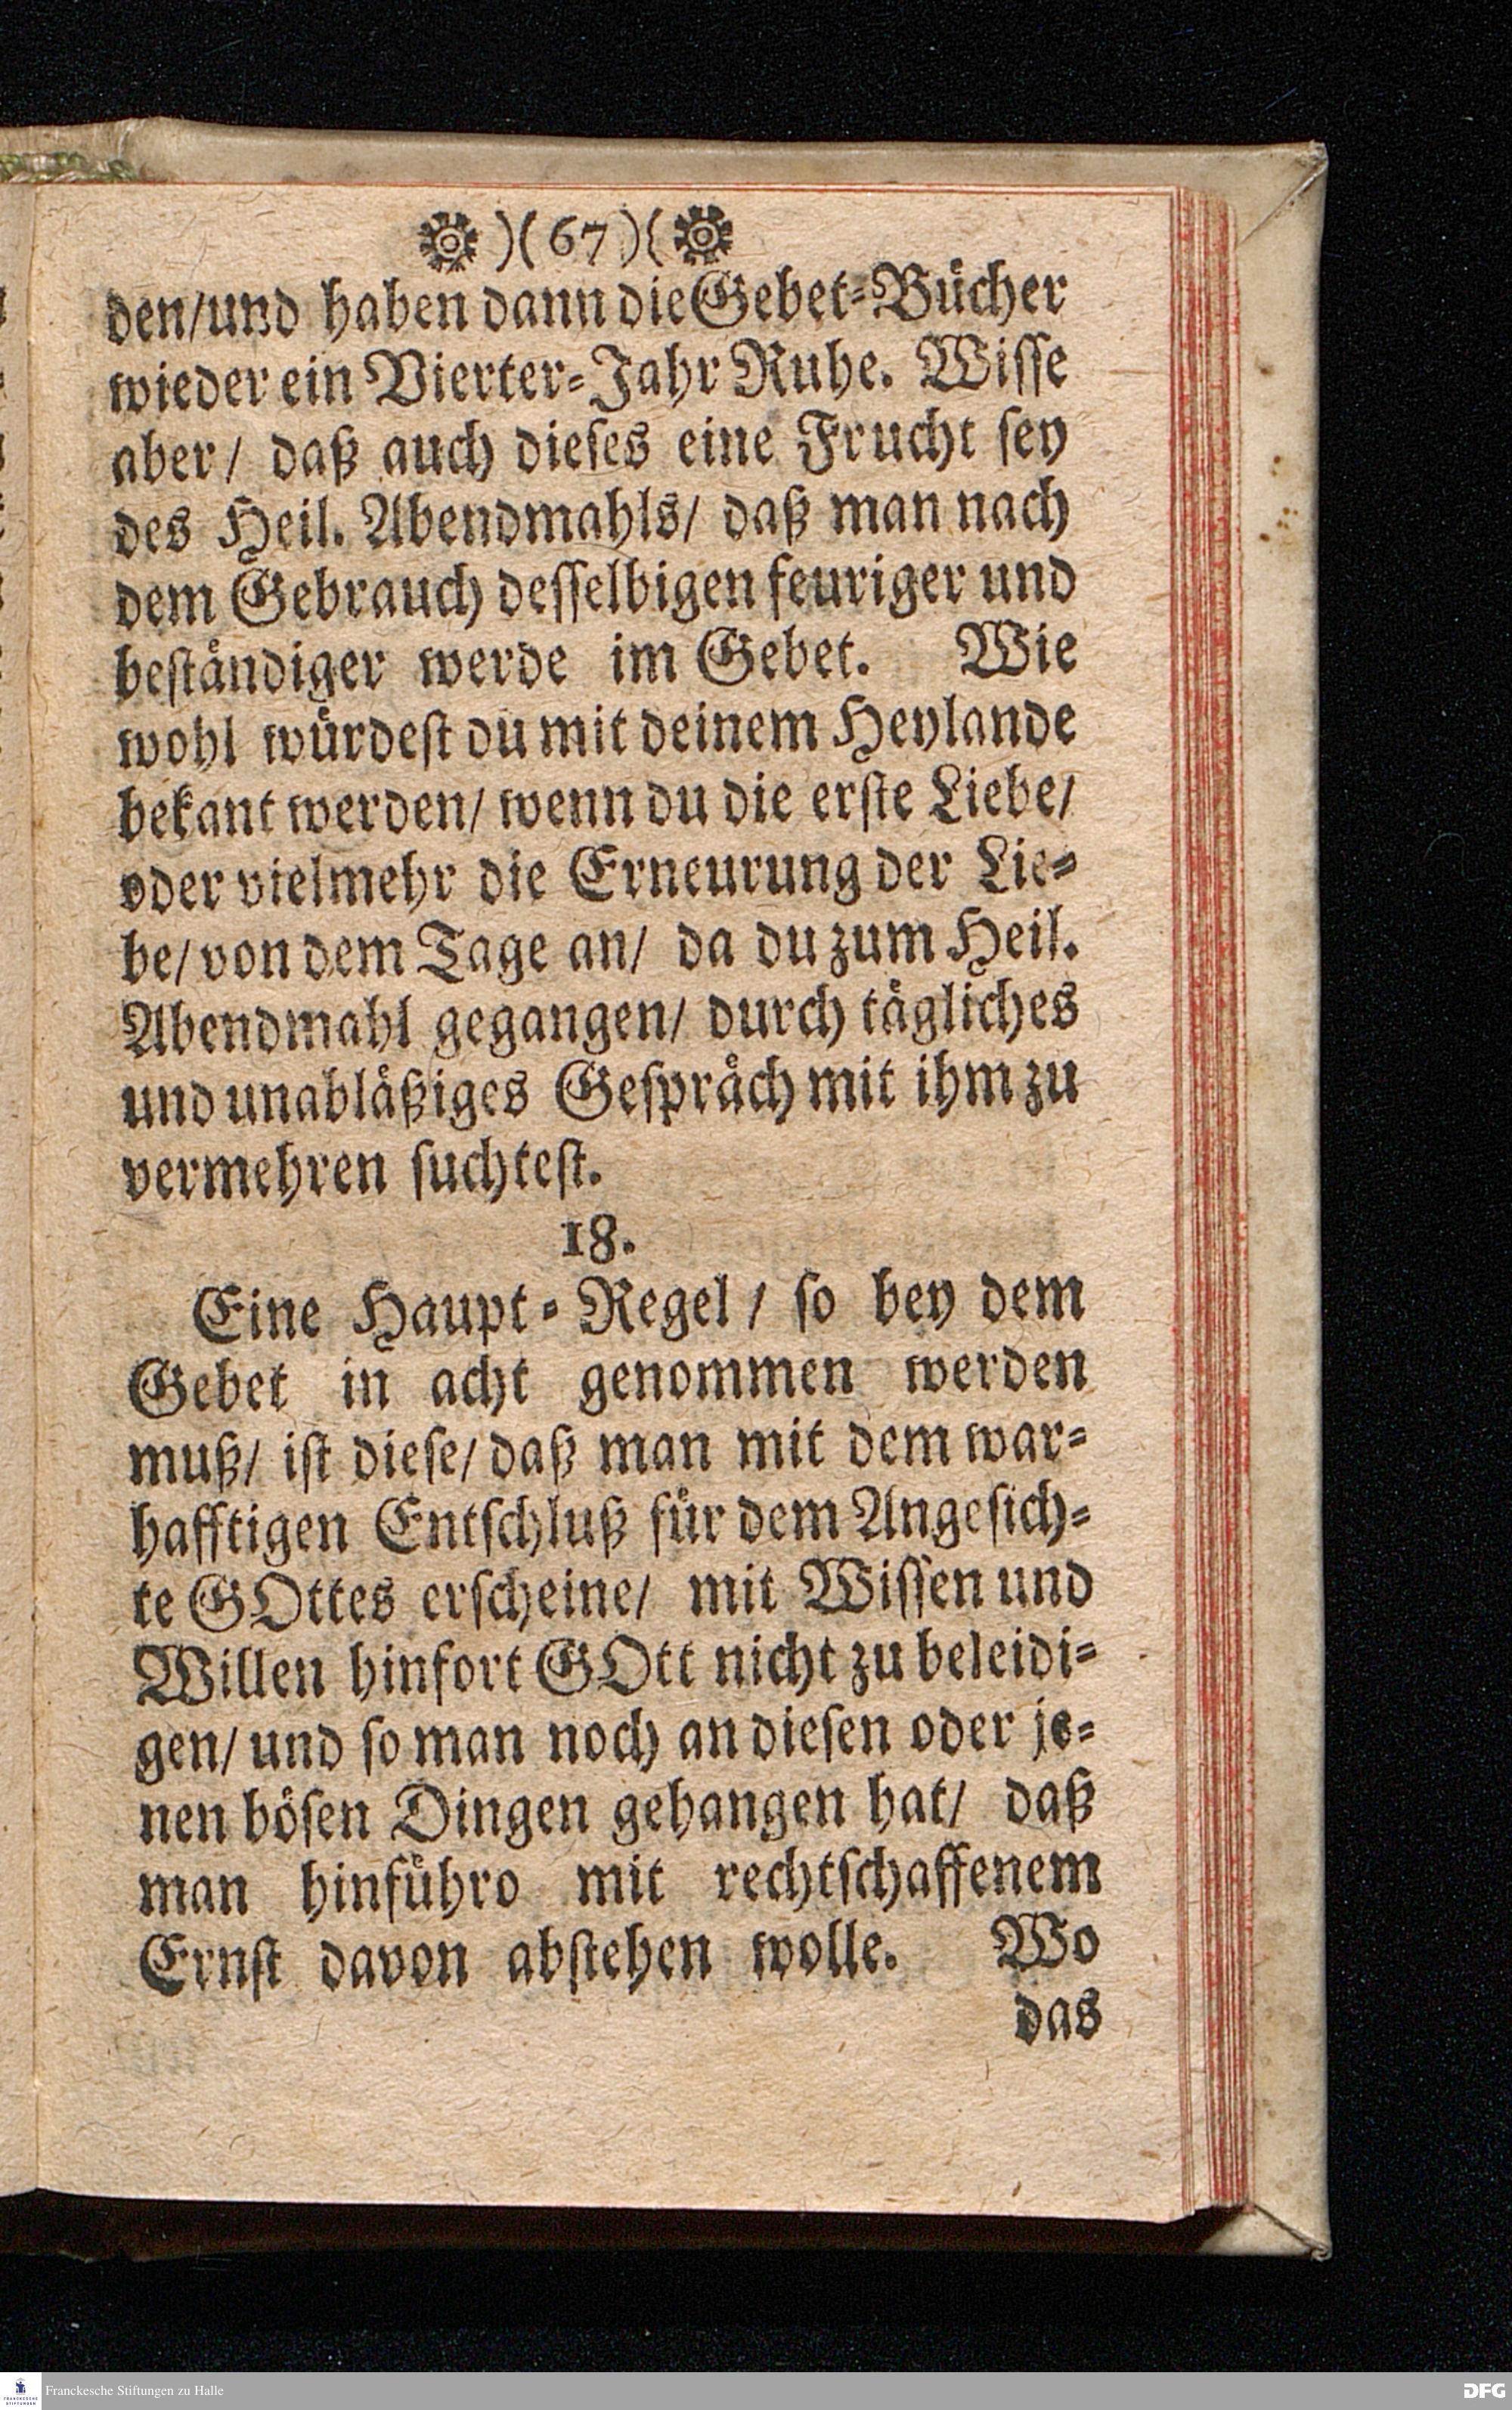 )(67)(
den/und haben dann die Gebet-Bücher
wieder ein Vierter-Jahr Ruhe. Wisse
aber/ daß auch dieses eine Frucht sey
des Heil. Abendmahls/ daß man nach
dem Gebrauch desselbigen feuriger und
beständiger werde im Gebet. Wie
wohl würdest du mit deinem Heylande
bekant werden/ wenn du die erste Liebe/
oder vielmehr die Erneurung der Lie-
be/ von dem Tage an/ da du zum Heil.
Abendmahl gegangen/ durch tägliches
und unabläßiges Gespräch mit ihm zu
vermehren suchtest.
18.
Eine Haupt-Regel/ so bey dem
Gebet in acht genommen werden
muß/ ist diese/ daß man mit dem war-
hafftigen Entschluß für dem Angesich-
te GOttes erscheine/ mit Wissen und
Willen hinfort GOtt nicht zu beleidi-
gen/ und so man noch an diesen oder je-
nen bösen Dingen gehangen hat/ daß
man hinführo mit rechtschaffenem
Ernst davon abstehen wolle. Wo
das
FRANCKESCHE STIFTUNGEN
Franckesche Stiftungen zu Halle
DFG